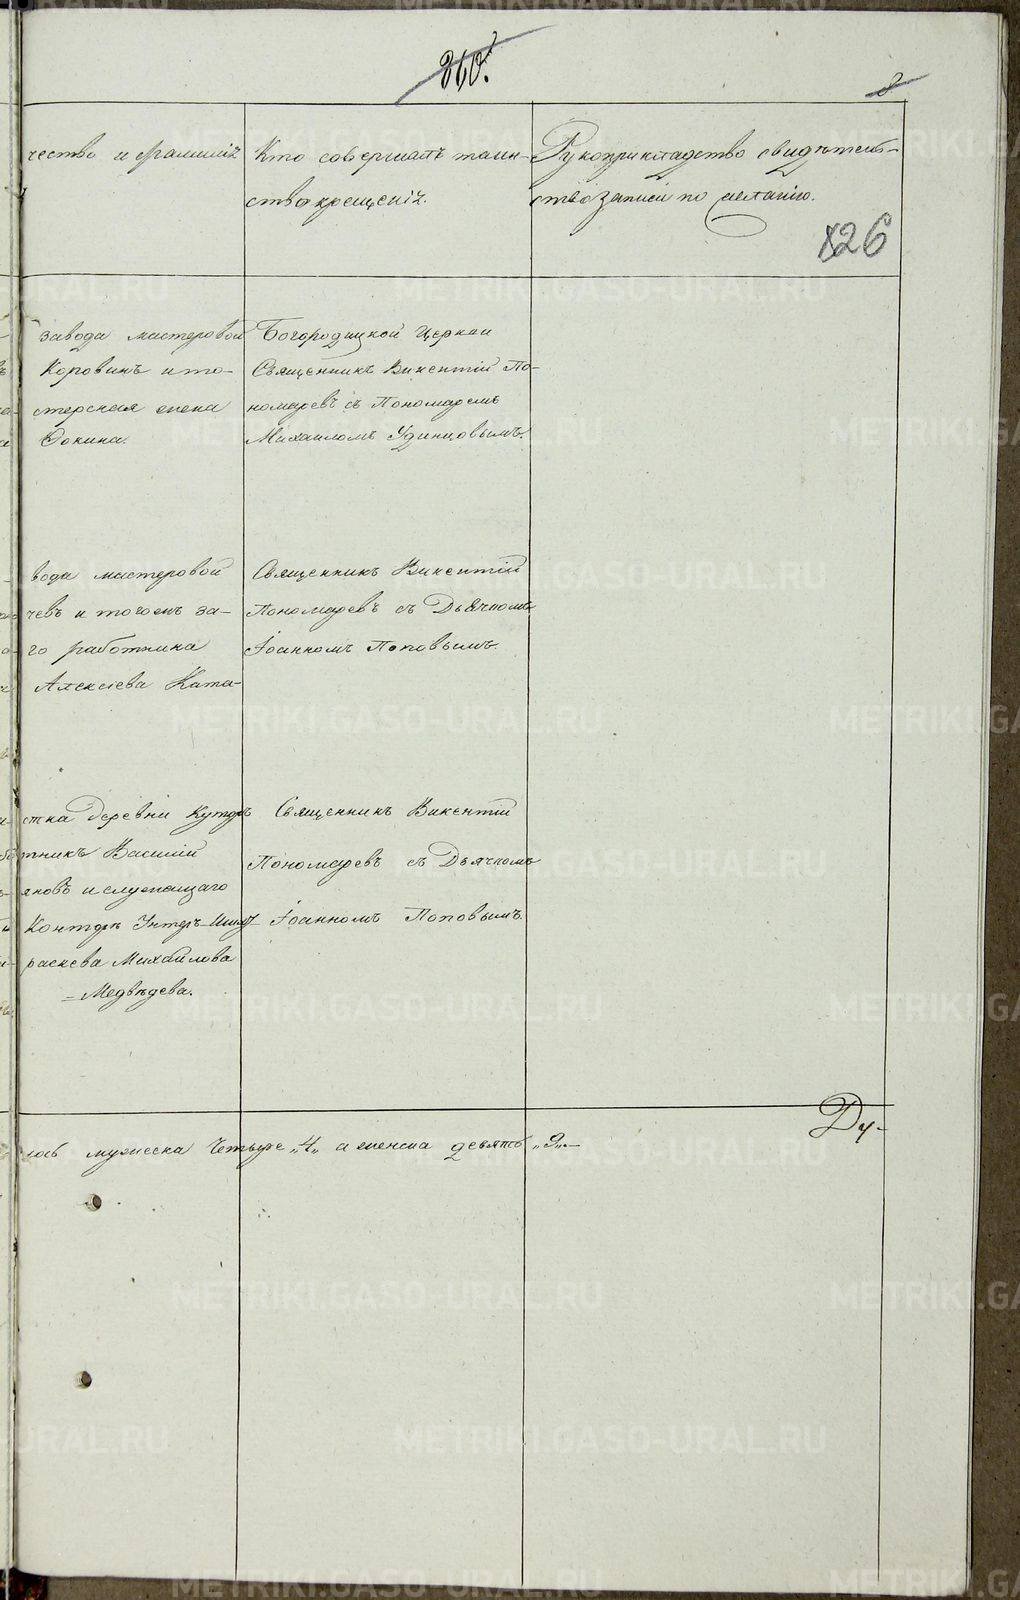 360.
8
чество и фамилія
Кто совершалъ таин-
ство крещенія.
Рукоприкладство свидѣтель-
ство записи по желанію.
126
завода мастеровой
Коровинъ и то-
мастерская жена
Фокина.
Богородицкой Церкви
Священникъ Викентій По-
номаревъ съ Пономаремъ
Михаиломъ Удинцовымъ.
вода мастеровой
чевъ и тогожъ за-
го работника
Алексіева Ката-
Священникъ Викентій
Пономаревъ съ Дьячкомъ
Іоанномъ Поповымъ.
стка деревни
тникъ Василій
яновъ и служащаго
Конторѣ Унтеръ-Шихт-
раскева Михайлова
Медвѣдева.
Священникъ Викентій
Пономаревъ съ Дьячкомъ
Іоанномъ Поповымъ.
Ду-
лось мужеска Четыре „4„ а женска девять „9„
METRIKI.GASO-URAL.RU